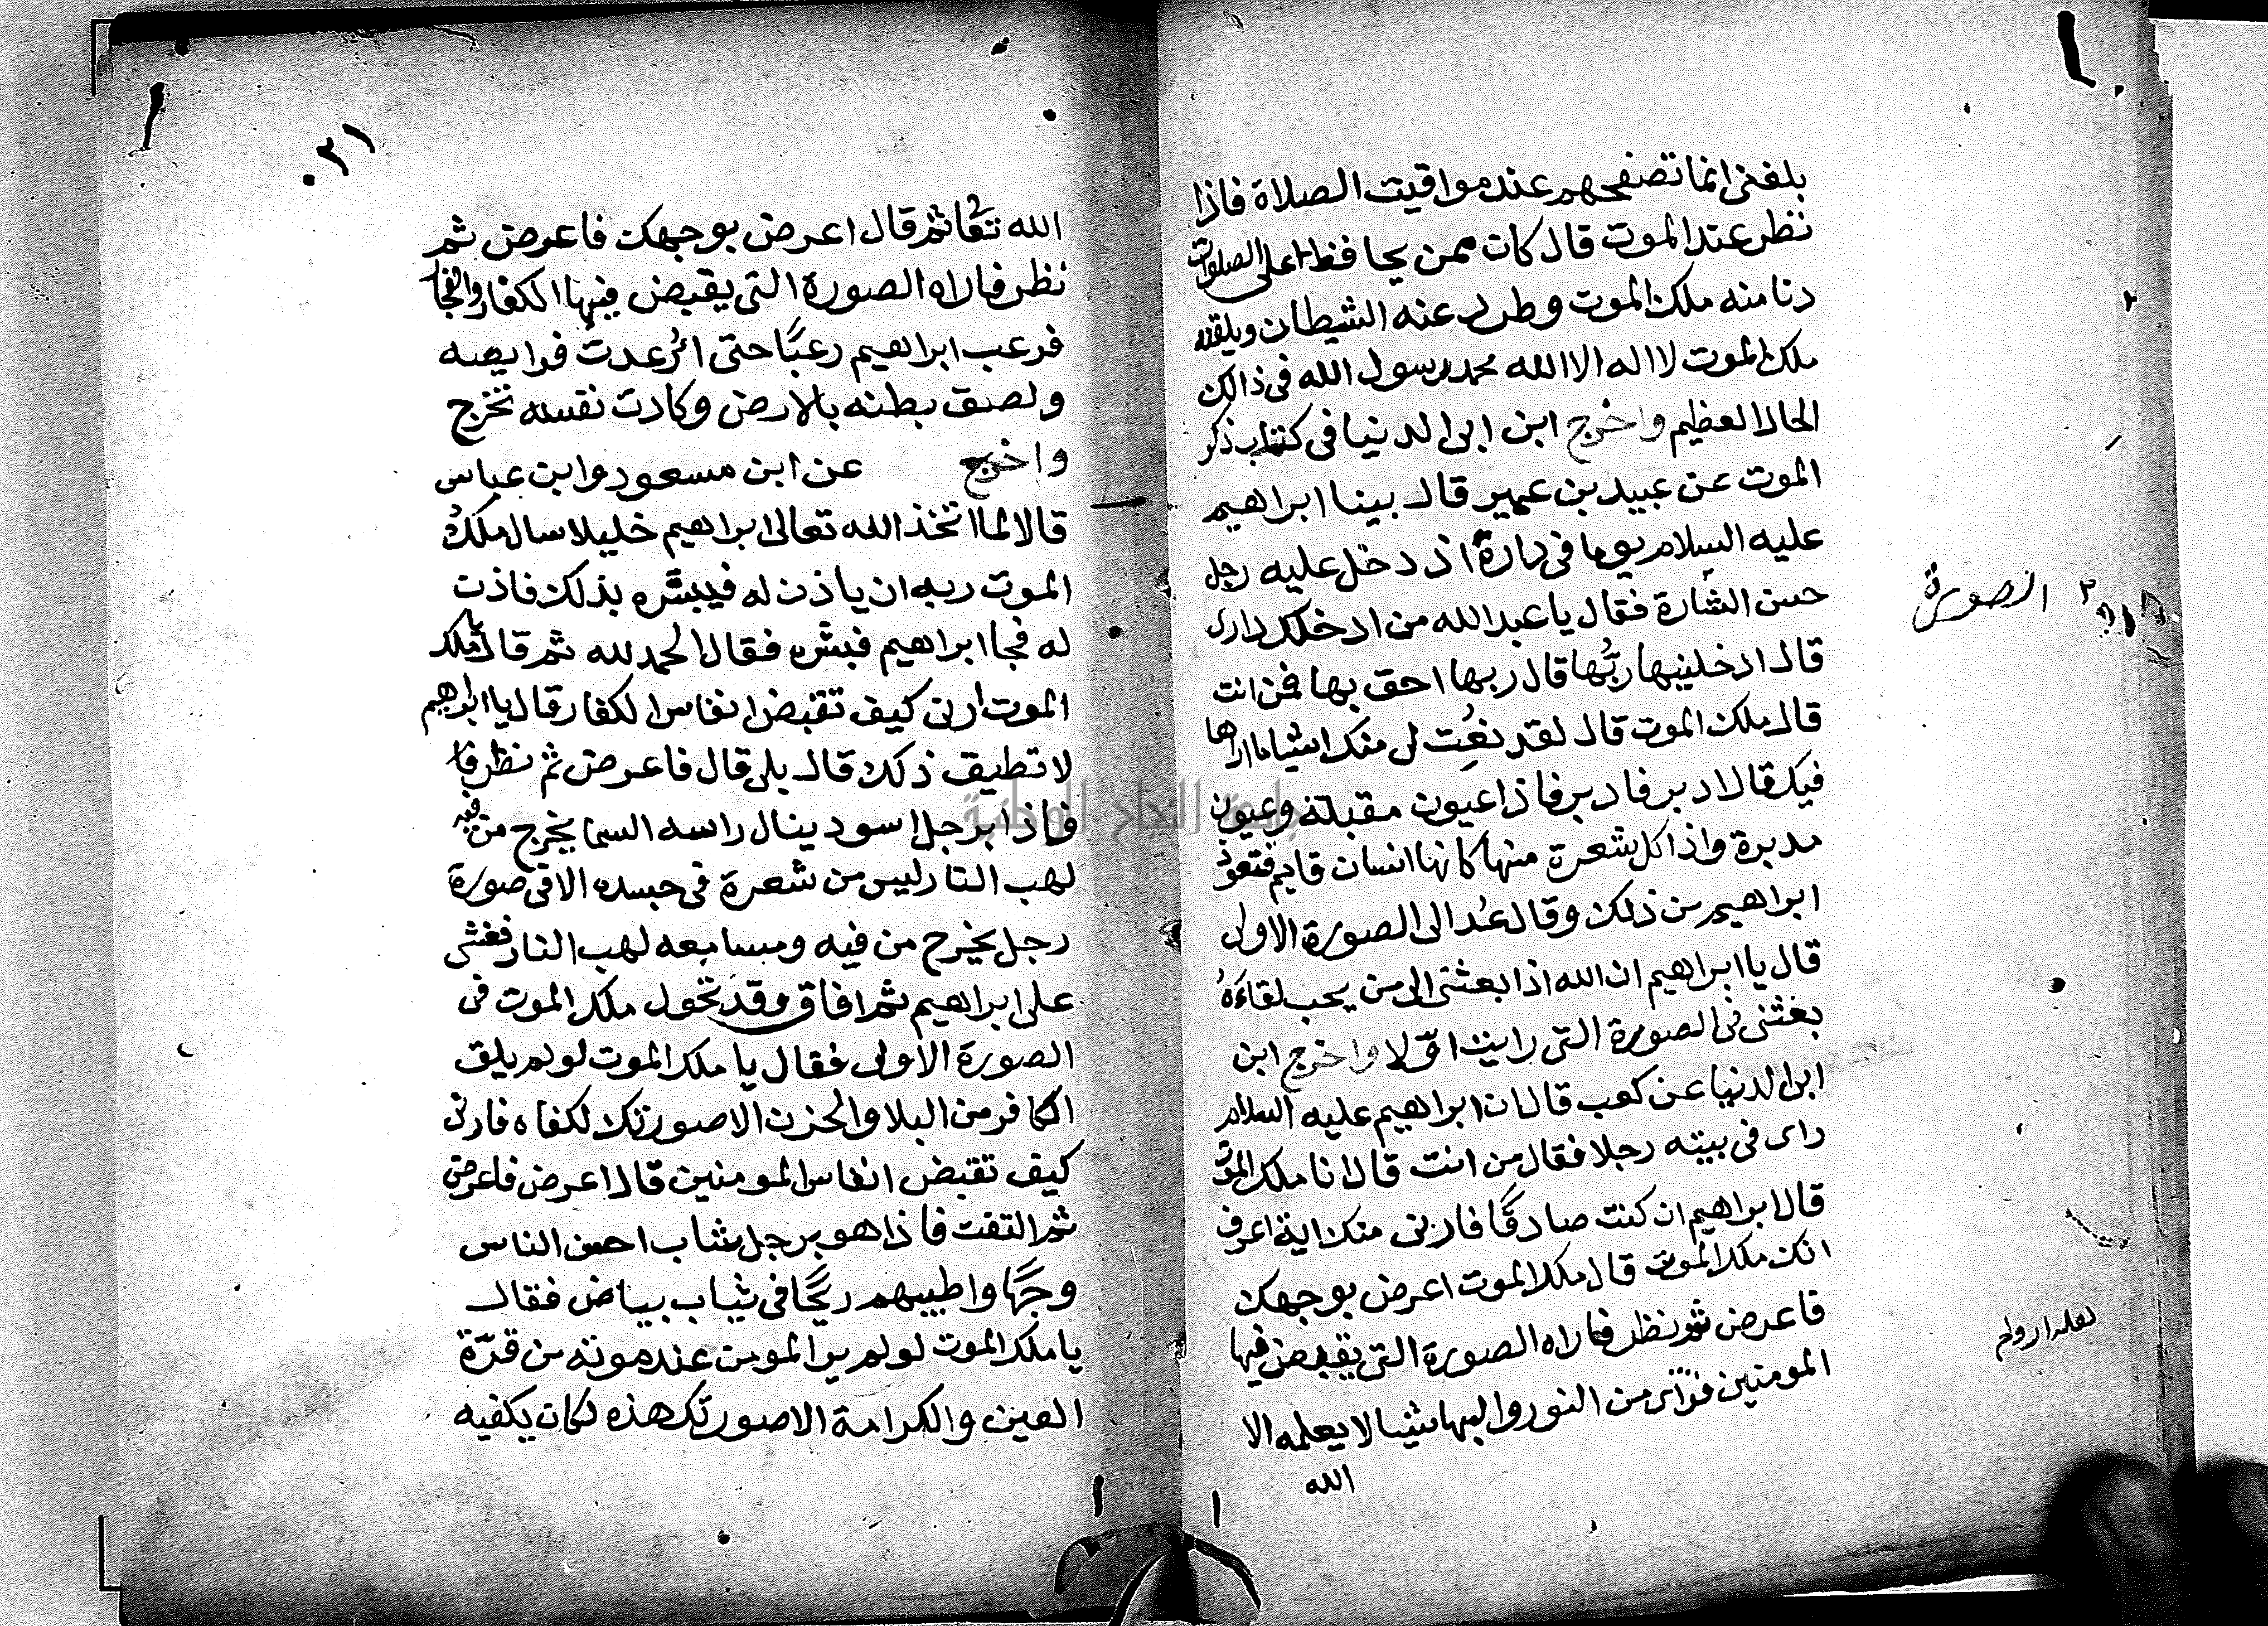 بلغنى انما تصفحهم عند مواقيت الصلاة فاذا
نظر عند الموت قال كان ممن يحافظ على الصلوات
دنا منه ملك الموت وطرد عنه الشيطان ويلقنه
ملك الموت لا اله الا الله محمد رسول الله فى ذالك
الحال العظيم واخرج ابن ابى الدنيا فى كتاب ذكر
الموت عن عبيد بن عمير قال بينا ابراهيم
عليه السلام يوما فى داره اذ دخل عليه رجل
حسن الشارة فقال يا عبد الله من ادخلك دارى
قال ادخلنيها ربها قال ربها احق بها فمن انت
قال ملك الموت قال لقد نعت لى منك اشياء ما اراها
فيك قال ادبر فادبر فاذا عيون مقبلة وعيون
مدبرة واذا كل شعرة منها كانها انسان قايم فتعوذ
ابراهيم من ذلك وقال عد الى الصورة الاولى
قال يا ابراهيم ان الله اذا بعثنى الى من يحب لقاءه
بعثنى فى الصورة التى رايت اولا واخرج ابن
ابى الدنيا عن كعب قال ان ابراهيم عليه السلام
راى فى بيته رجلا فقال من انت قال انا ملك الموت
قال ابراهيم ان كنت صادقا فارنى منك اية اعرف
انك ملك الموت قال ملك الموت اعرض بوجهك
فاعرض ثم نظر فاراه الصورة التى يقبض فيها
المومنين فراى من النور والبها شيا لا يعلمه الا
الله
الصورة
٣١
الله تعا ثم قال اعرض بوجهك فاعرض ثم
نظر فاراه الصورة التى يقبض فيها الكفار والفجا
فرعب ابراهيم رعبا حتى ارعدت فرايصه
ولصق بطنه بالارض وكادت نفسه تخرج
واخرج عن ابن مسعود وابن عباس
قالا لما اتخذ الله تعالى ابراهيم خليلا سال ملك
الموت ربه ان ياذن له فيبشره بذلك فاذن
له فجا ابراهيم فبشره فقال الحمد لله ثم قال يا ملك
الموت ارنى كيف تقبض انفاس الكفار قال يا ابراهيم
لا تطيق ذلك قال بلى قال فاعرض ثم نظر
فاذا برجل اسود ينال راسه السما يخرج من فيه
لهب النار ليس من شعرة فى جسده الا فى صورة
رجل يخرج من فيه ومسامعه لهب النار فغشى
على ابراهيم ثم افاق وقد تحول ملك الموت فى
الصورة الاولى فقال يا ملك الموت لو لم يلق
الكافر من البلا والحزن الا صورتك لكفاه فارنى
كيف تقبض انفاس المومنين قال اعرض فاعرض
ثم التفت فاذا هو برجل شاب احسن الناس
وجها واطيبهم ريحا فى ثياب بياض فقال
يا ملك الموت لو لم ير المومن عند موته من قرة
العين والكرامة الا صورتك هذه لكان يكفيه
جامعة النجاح الوطنية